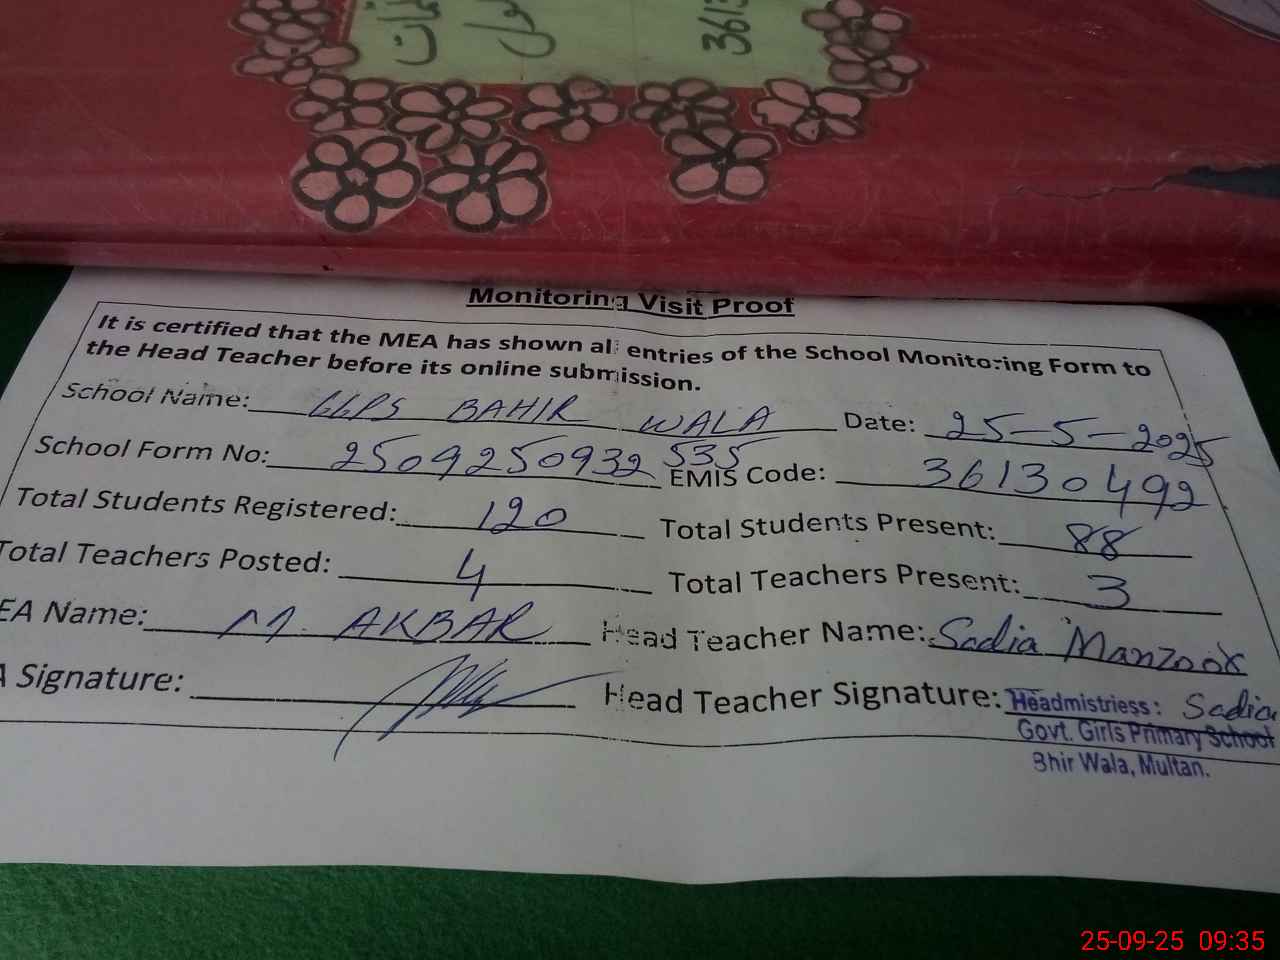 3613
Monitoring Visit Proof
It is certified that the MEA has shown all entries of the School Monitoring Form to
the Head Teacher before its online submission.
School Name: GGPS BAHIR WALA Date: 25-5-2025
School Form No: 2509250932535 EMIS Code: 36130492
Total Students Registered: 120 Total Students Present: 88
Total Teachers Posted: 4 Total Teachers Present: 3
EA Name: M. AKBAR Head Teacher Name: Sadia Manzoor
A Signature: Head Teacher Signature: Headmistriess: Sadia
Govt. Girls Primary School
Bhir Wala, Multan.
25-09-25 09:35